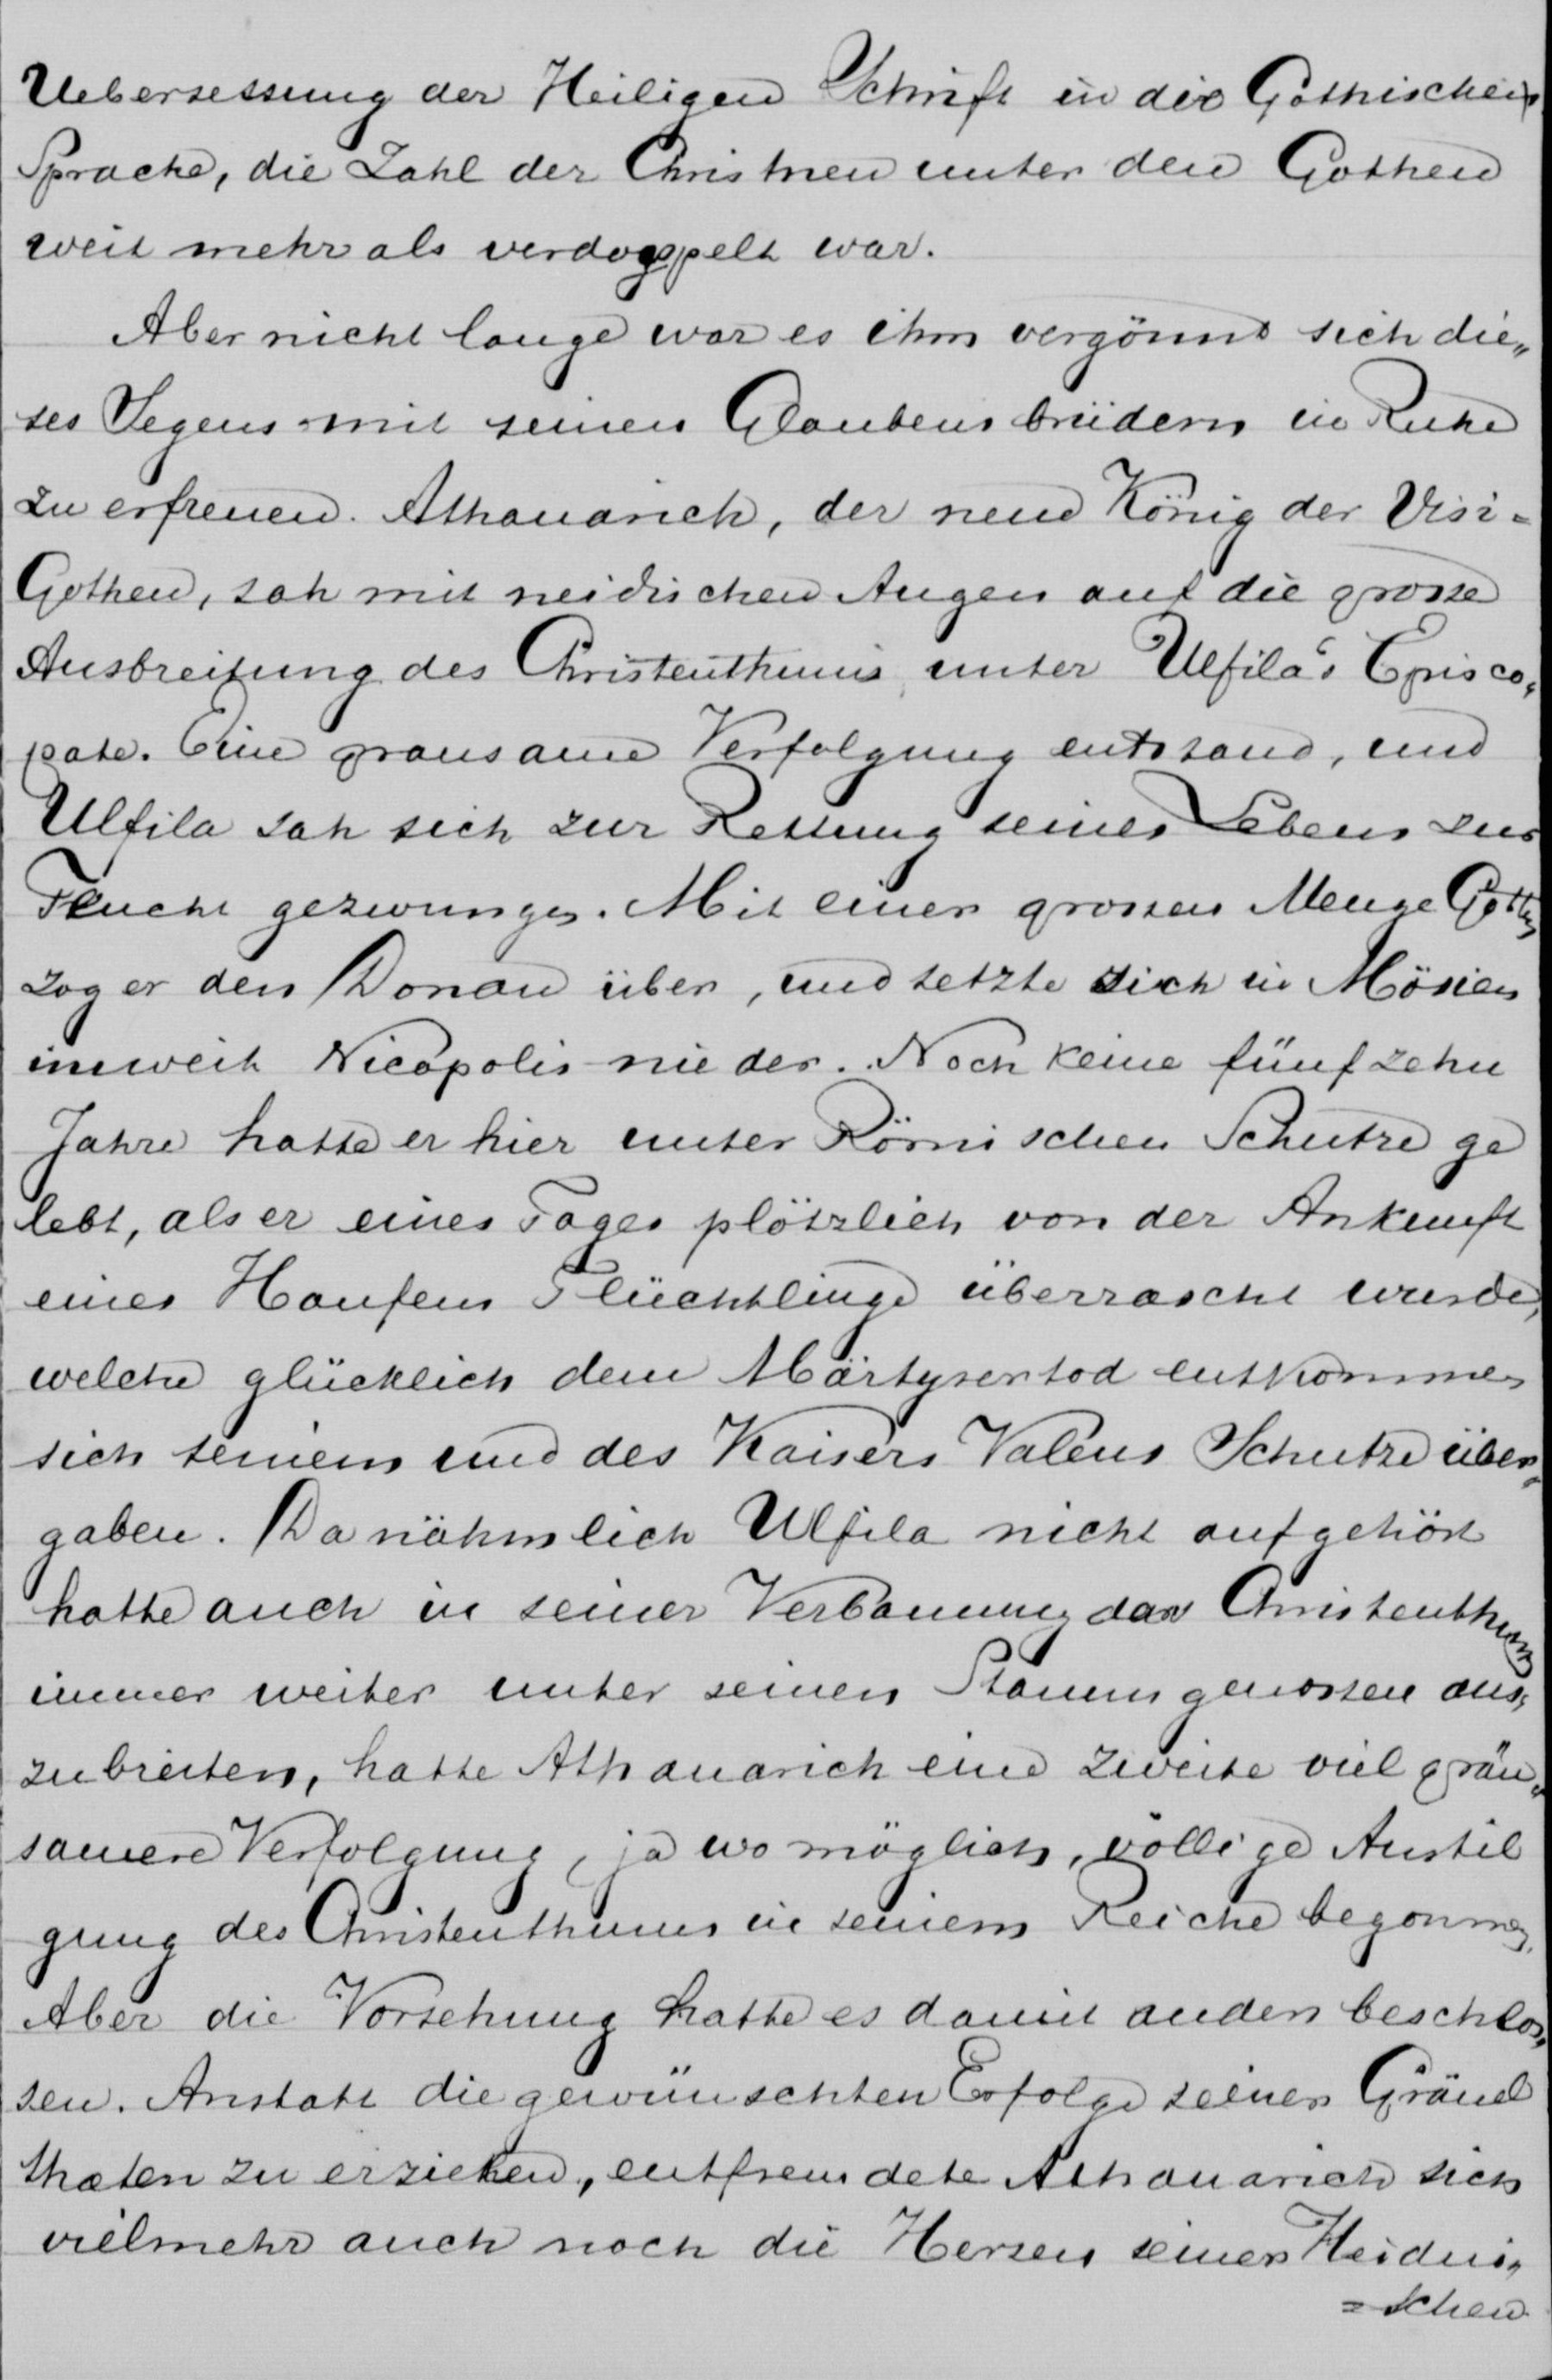 Uebersetsung der Heiligen Schrift in die Gothischen
Sprache, die Zahl der Christnen unter den Gothen
weit mehr als verdoppelt war.
Aber nicht lange war es ihm vergönnt sich die„
ses Segens mit seinen Glaubensbrüdern in Ruhe
zu erfreuen. Athanarich, der neue König der Visi=
Gothen, sah mit neidischen Augen auf die grosse
Ausbreitung des Christenthums unter Ulfila's Episco„
pate. Eine grausame Verfolgung entstand, und
Ulfila sah sich zur Rettung seines Lebens zur
Flucht gezwungen. Mit einer grossen Menge Gothen
zog er den Donau über, und setzte sich in Mösien
inweit Nicopolis nieder. Noch keine fünfzehn
Jahre hatte er hier unter Römischen Schutze ge
lebt, als er eines Tages plötzlich von der Ankunft
eines Haufens Flüchtlinge überrascht wurde,
welche glücklich dem Märtyrertod entkommen
sich seinem und des Kaisers Valens Schutze über„
gaben. Da nähmlich Ulfila nicht aufgehört
hatte auch in seiner Verbannung das Christenthum
immer weiter unter seinen Stammgenossen aus„
zubreiten, hatte Athanarich eine zweite viel gräu„
samere Verfolgung, ja wo möglich, völlige Austil
gung des Christenthums in seinem Reiche begonnen.
Aber die Vorsehung hatte es damit anders beschlos„
sen. Anstatt die gewünschten Erfolge seiner Gräuel
thaten zu erziehen, entfremdete Athanarich sich
vielmehr auch noch die Herzen seiner Heidni„
=schen